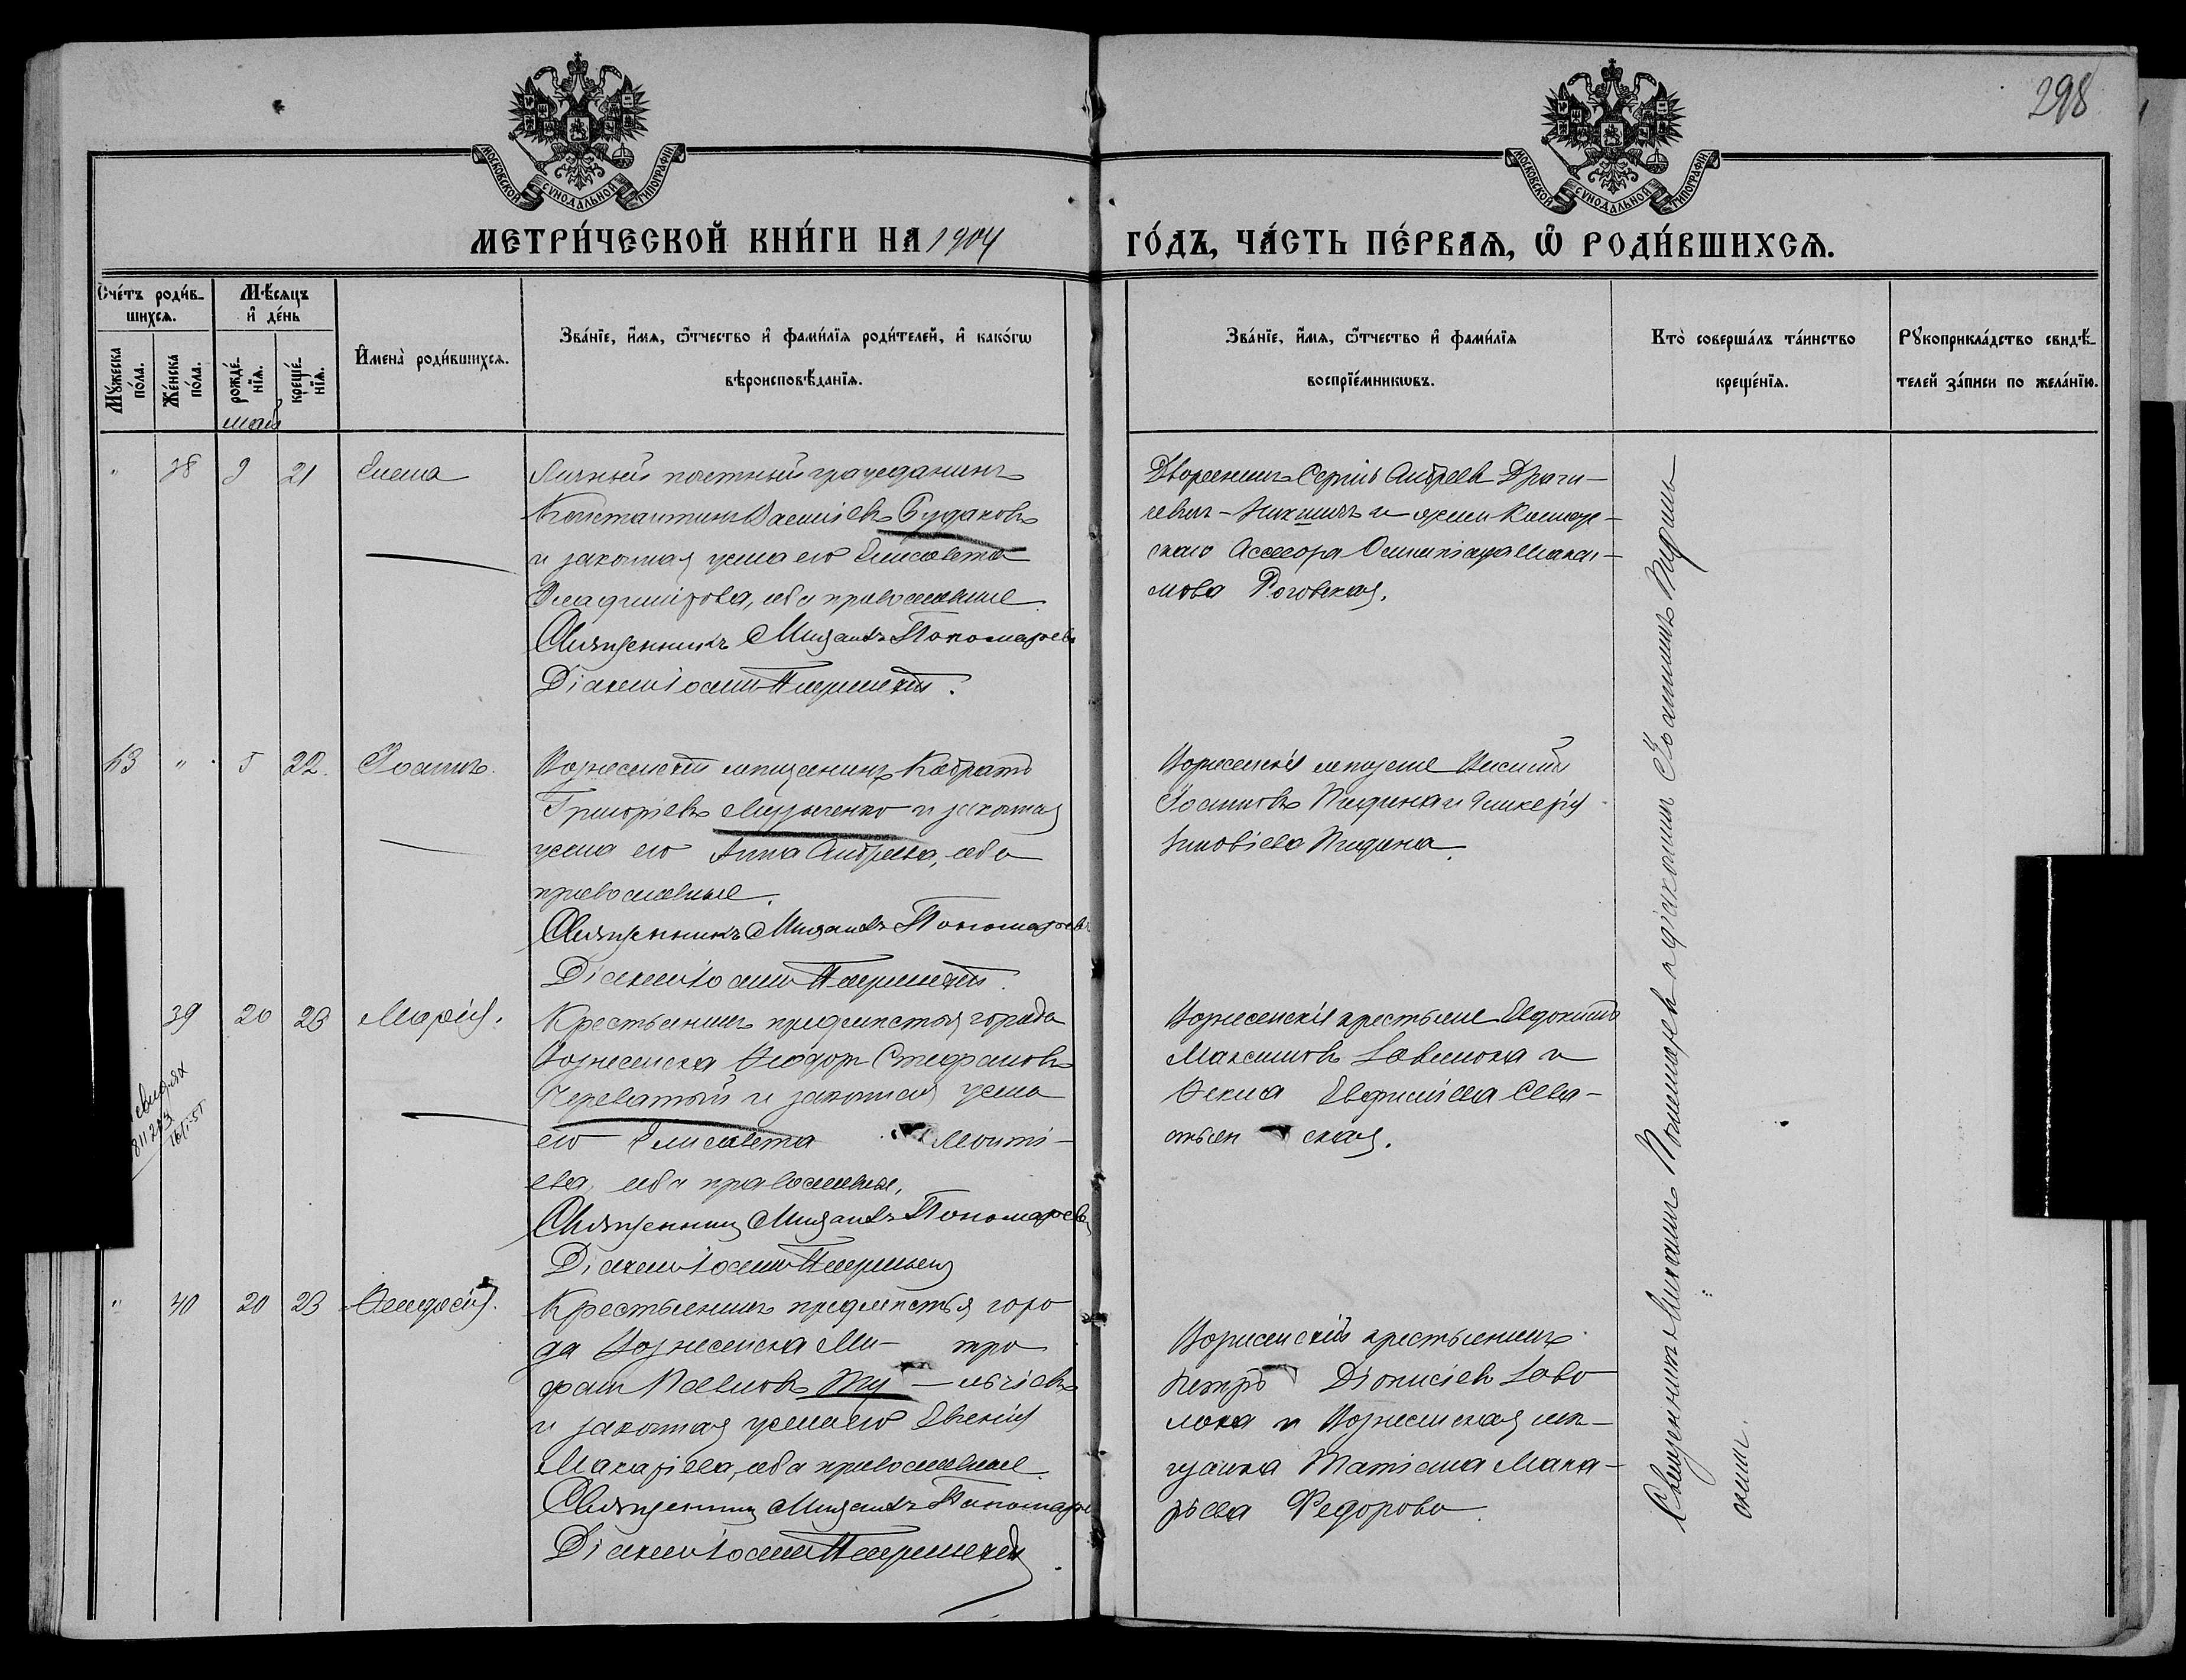 298
МОСКОВСКОЙ СѴНОДАЛЬНОЙ ТИПОГРАФІИ
МОСКОВСКОЙ СѴНОДАЛЬНОЙ ТИПОГРАФІИ
МЕТРИ́ЧЕСКОЙ КНИ́ГИ НА 1904
ГО́ДЪ, ЧА́СТЬ ПЕ́РВАѦ, Ѡ҆ РОДИ́ВШИХСѦ.
Сче́тъ роди́в-
шихсѧ.
Мꙋ́жеска по́ла.
Же́нска по́ла.
Мѣ́сѧцъ
и҆ де́нь
рожде́-
нїѧ.
креще́-
нїѧ.
май
И҆мена̀ роди́вшихсѧ.
Зва́нїе, и҆́мѧ, ѻ҆́тчество и҆ фами́лїѧ роди́телей, и҆ како́гѡ
вѣроисповѣ́данїѧ.
Зва́нїе, и҆́мѧ, ѻ҆́тчество и҆ фами́лїѧ
воспрїе́мникѡвъ.
Кто̀ соверша́лъ та́инство
креще́нїѧ.
Рꙋкоприкла́дство свидѣ́-
телей за́писи по жела́нїю.
" 38 9 21 Елена
Личный почетный гражданинъ
Константинъ Василіевъ Будаковъ
и законная жена его Елисавета
Владимірова, оба православные
Священникъ Михаилъ Пономаревъ
Діаконъ Іоаннъ
Дворянинъ Сергій Андреевъ Драги-
чевичъ-Никшичъ и жена Коллеж-
скаго Ассесора Олимпіада
Роговская.
43 " 5 22. Іоаннъ.
Вознесенскій мѣщанинъ Кодратъ
Григоріевъ и законная
жена его Анна Андреева, оба
православные.
Священникъ Михаилъ Пономаревъ
Діаконъ Іоаннъ
Вознесенскіе мѣщане Василій
Іоанновъ и Гликерія
Зиновіева
39 20 23 Марія.
Крестьянинъ предмѣстья города
Вознесенска Ѳеодоръ Стефановъ
Череватый и законная жена
его Елисавета Леонті-
ева, оба православные,
Священникъ Михаилъ Пономаревъ
Діаконъ Іоаннъ
Вознесенскіе крестьяне Евдокимъ
Максимовъ и
Ѳекла Сева-
стьян ская.
" 40 20 23 Ѳеодосія.
Крестьянинъ предмѣстья горо
да Вознесенска Ми- тро
фанъ Павловъ
и законная жена его Евгенія
Макаріева, оба православные
Священникъ Михаилъ Пономаревъ
Діаконъ Іоаннъ
Вознесенскій крестьянинъ
Петръ Діонисіевъ
и Вознесенская мѣ-
щанка Татіана Мака-
ріева Федорова.
Священникъ Михаилъ Пономаревъ съ діакономъ Іоанномъ